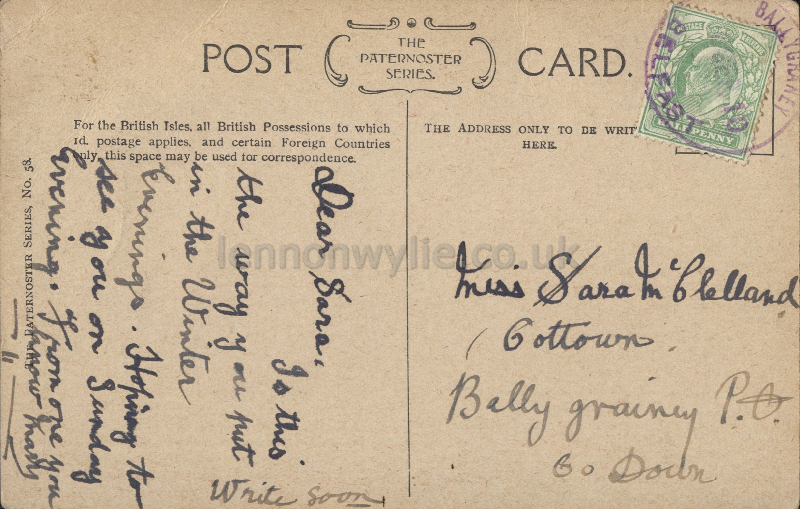 POST CARD.
THE
PATERNOSTER
SERIES.
For the British Isles, all British Possessions to which
1d. postage applies, and certain Foreign Countries
only, this space may be used for correspondence.
THE ADDRESS ONLY TO BE WRIT
HERE.
BELFAST
BALLYGRAINEY
PENNY
THE PATERNOSTER SERIES, No. 58.
Dear Sara,
Is this
the way you put
in the Winter
Evenings. Hoping to
see you on Sunday
Evening. From one you
know
Write soon
Miss Sara McClelland
Cottown
Bally grainey P.O.
Co Down
lennonwylie.co.uk